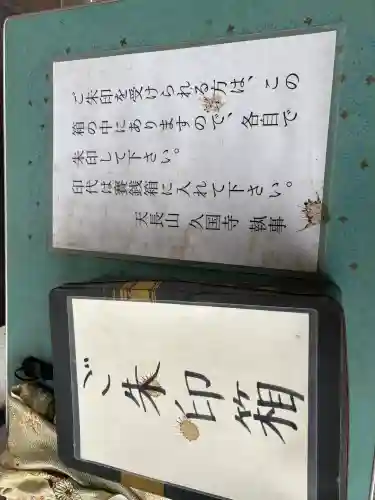 ご朱印を受けられる方は、この
箱の中にありますので、各自で
朱印して下さい。
印代は賽銭箱に入れて下さい。
天長山 久国寺 執事
ご朱印箱